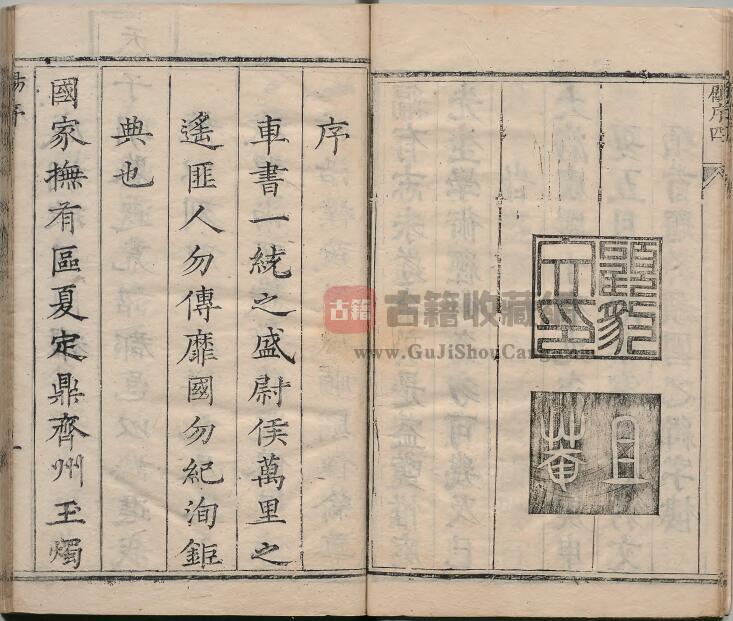 顧序四
且菴
序
車書一統之盛尉侯萬里之
遙匪人勿傳靡國勿紀洵鉅
典也
國家撫有區夏定鼎齊州玉燭
古籍
古籍收藏
www.GuJiShouCang